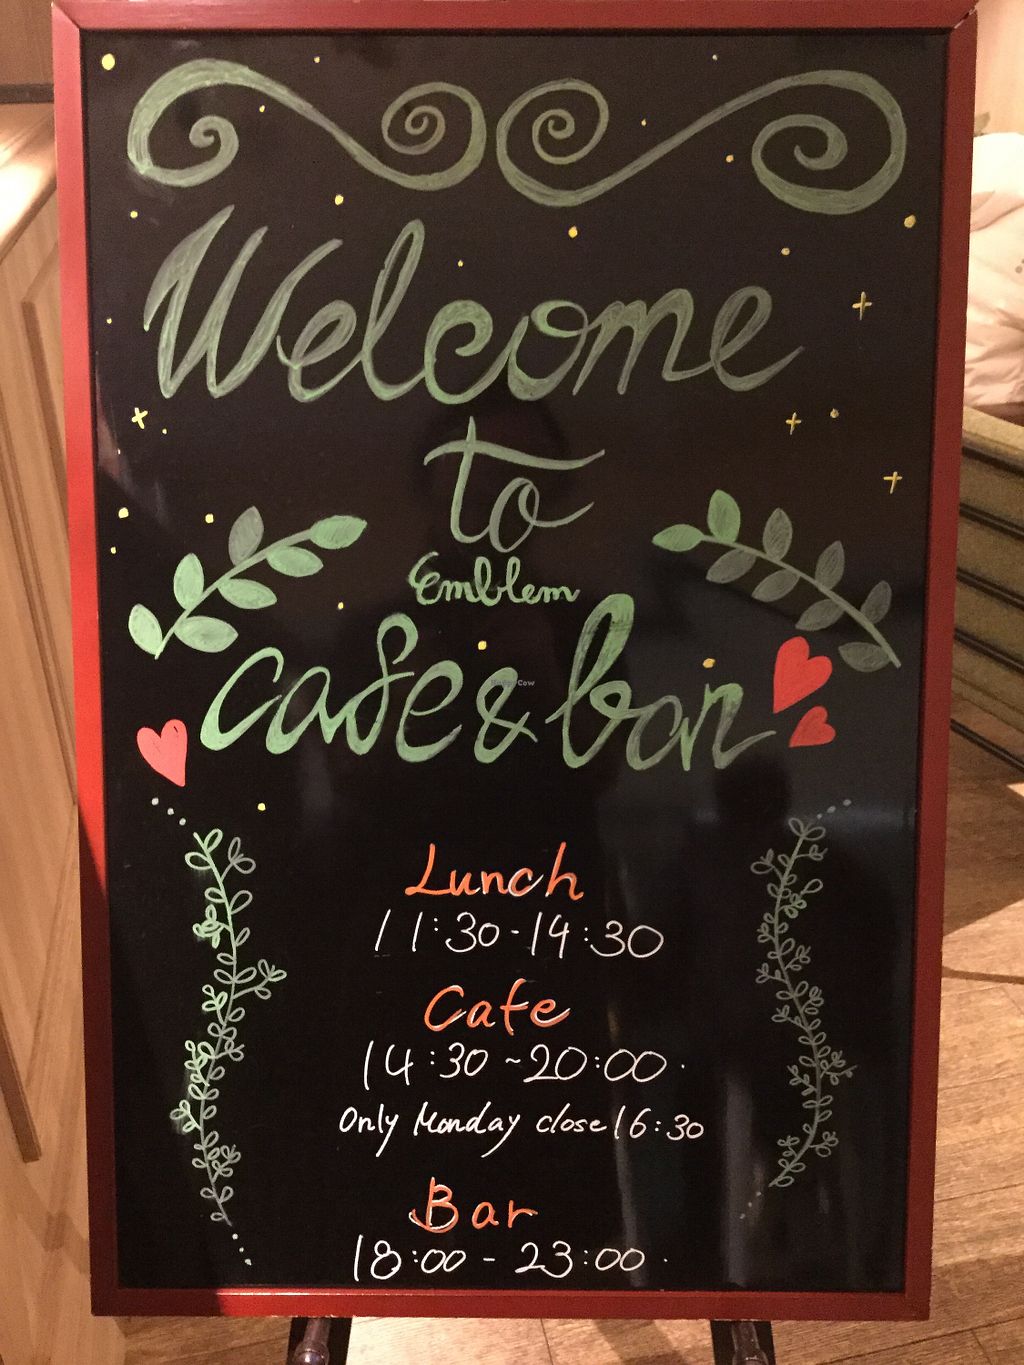 Welcome
to
Emblem
cafe & bar
HappyCow
Lunch
11:30-14:30
Cafe
14:30~20:00.
Only Monday close 16:30
Bar
18:00 - 23:00.